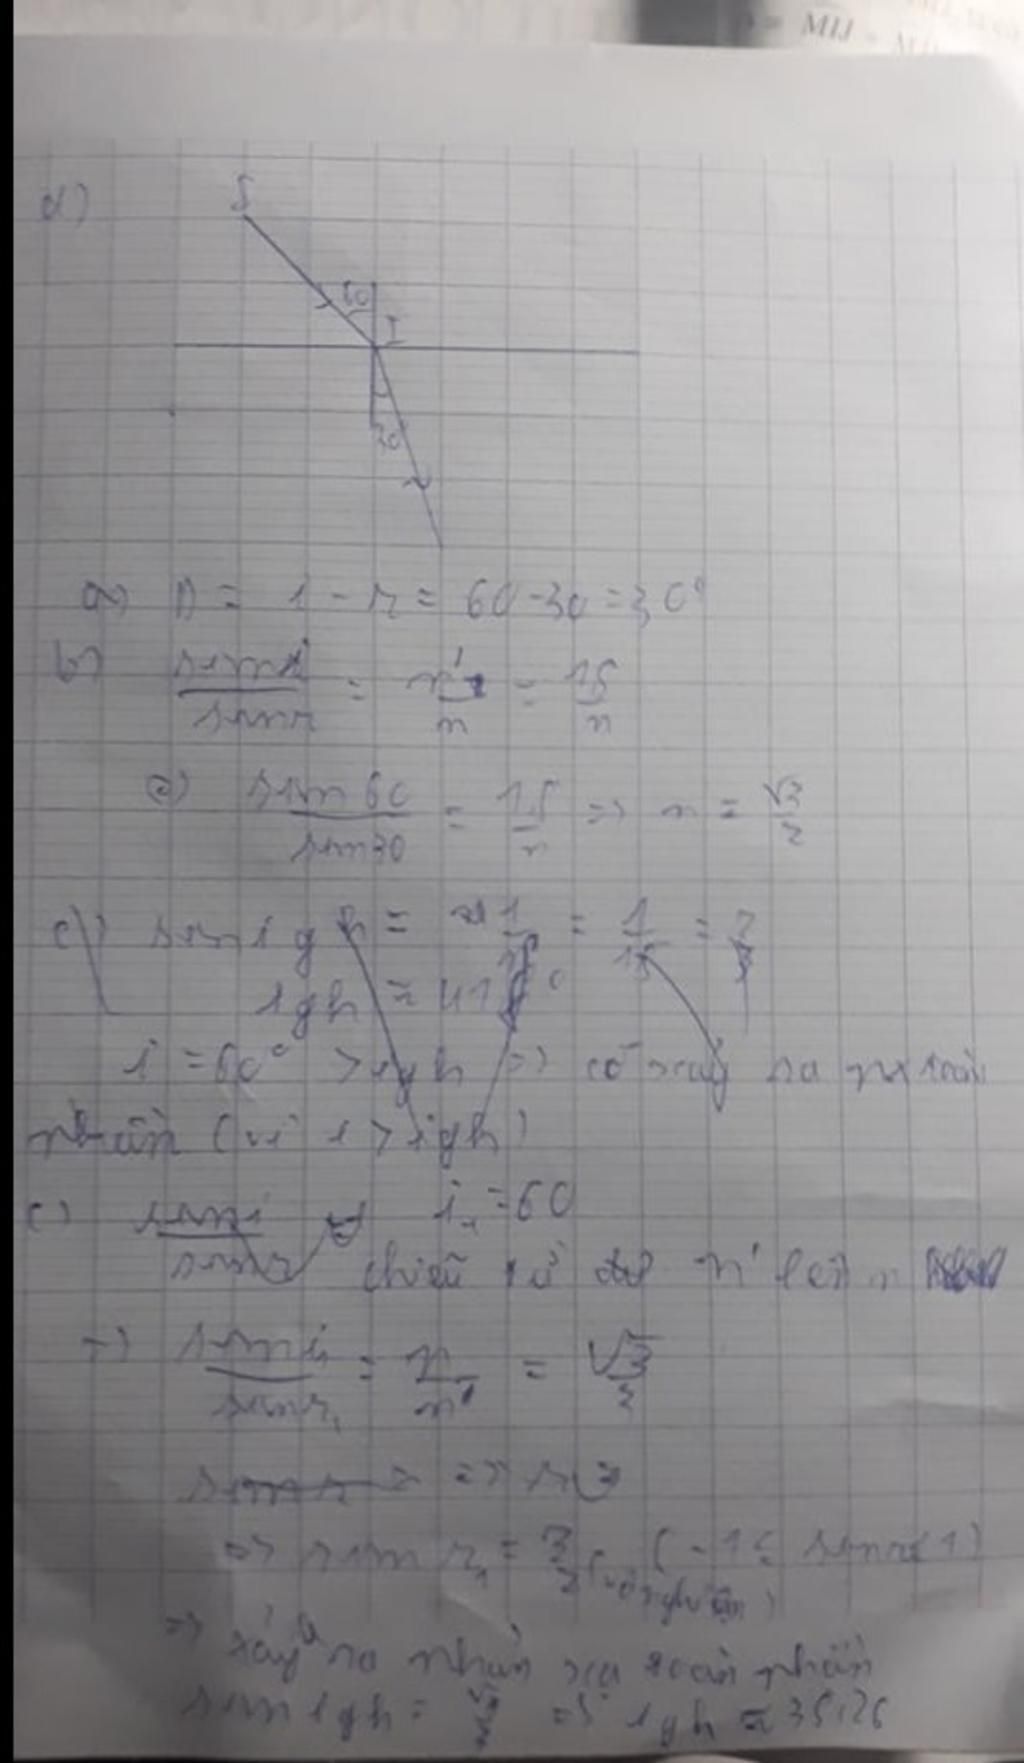 MIJ
d)
S
60
I
30
a) D = i - r = 60 - 30 = 30°
b) sini / sinr = n' / n = 1,5 / n
sin60 / sin30 = 1,5 / n => n = √3 / 2
c) sin igh = 1 / 1,5 = 2 / 3
igh ≈ 41
i = 60° > igh => có xảy ra px toàn
phần (vì i > igh)
c) sini / sinr i₁ = 60
chiếu từ n' lên n
=> sini₁ / sinr₁ = n / n' = √3 / 3
=> sin r₁ = 3 / 2 (-1 ≤ sinr ≤ 1)
(vô nghiệm)
=> xảy ra phản xạ toàn phần
sin igh = √3 / 3 => igh ≈ 35,26